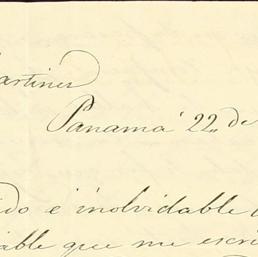 artines
Panamá 22,, de
ido é inolvidable
able que me escri